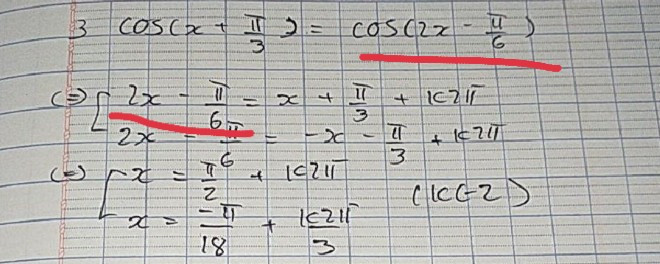 3 cos(x + π/3) = cos(2x - π/6)
(=) [ 2x - π/6 = x + π/3 + k2π
2x - π/6 = -x - π/3 + k2π
(=) [ x = π/2 + k2π
(k∈Z)
x = -π/18 + k2π/3